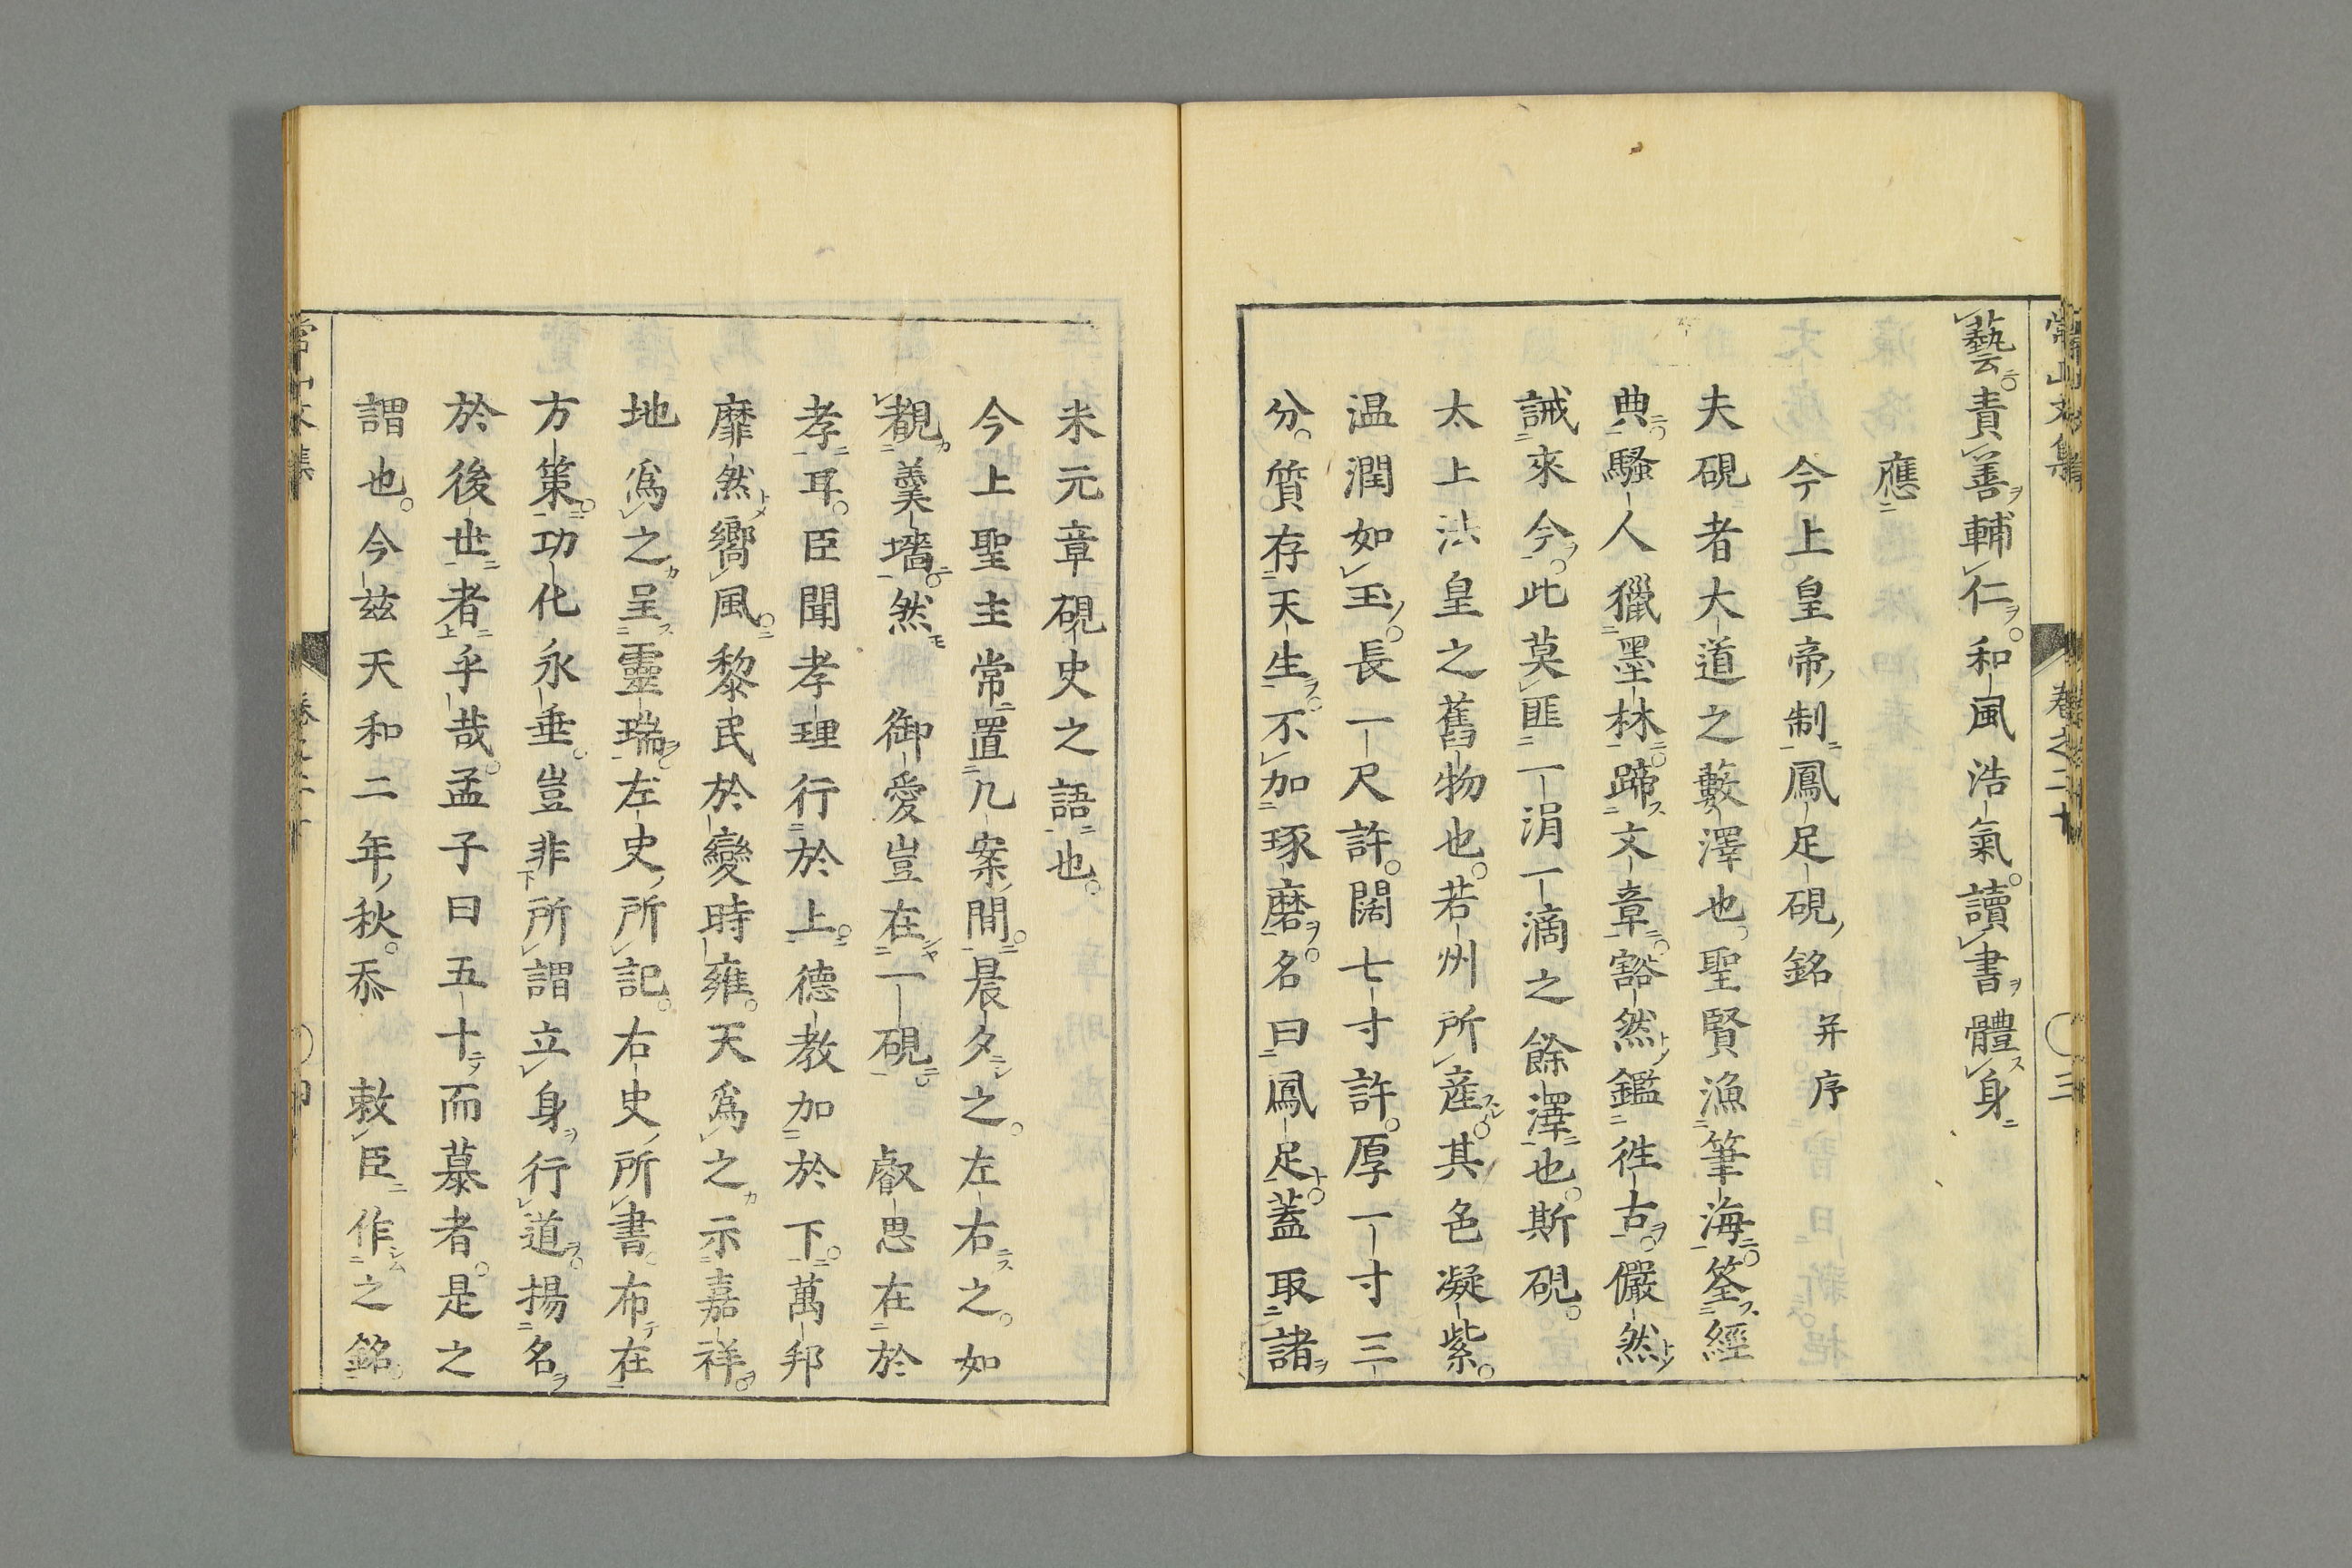 常山文集 卷之二十 三
藝云責善輔仁和風浩氣讀書體身
應
今上皇帝制鳳足硯銘并序
夫硯者大道之藪澤也聖賢漁筆海筌經
典騷人獵墨林蹄文章豁然鑑徃古儼然
誡來今此莫匪一涓一滴之餘澤也斯硯
太上法皇之舊物也若州所産其色凝紫
温潤如玉長一尺許闊七寸許厚一寸三
分質存天生不加琢磨名曰鳳足蓋取諸
米元章硯史之語也
今上聖主常置几案間晨夕之左右之如
覩羹墻然　御愛豈在一硯　叡思在於
孝耳臣聞孝理行於上德教加於下萬邦
靡然嚮風黎民於變時雍天爲之示嘉祥
地爲之呈靈瑞左史所記右史所書布在
方策功化永垂豈非所謂立身行道揚名
於後世者乎哉孟子曰五十而慕者是之
謂也今玆天和二年秋忝　敕臣作之銘